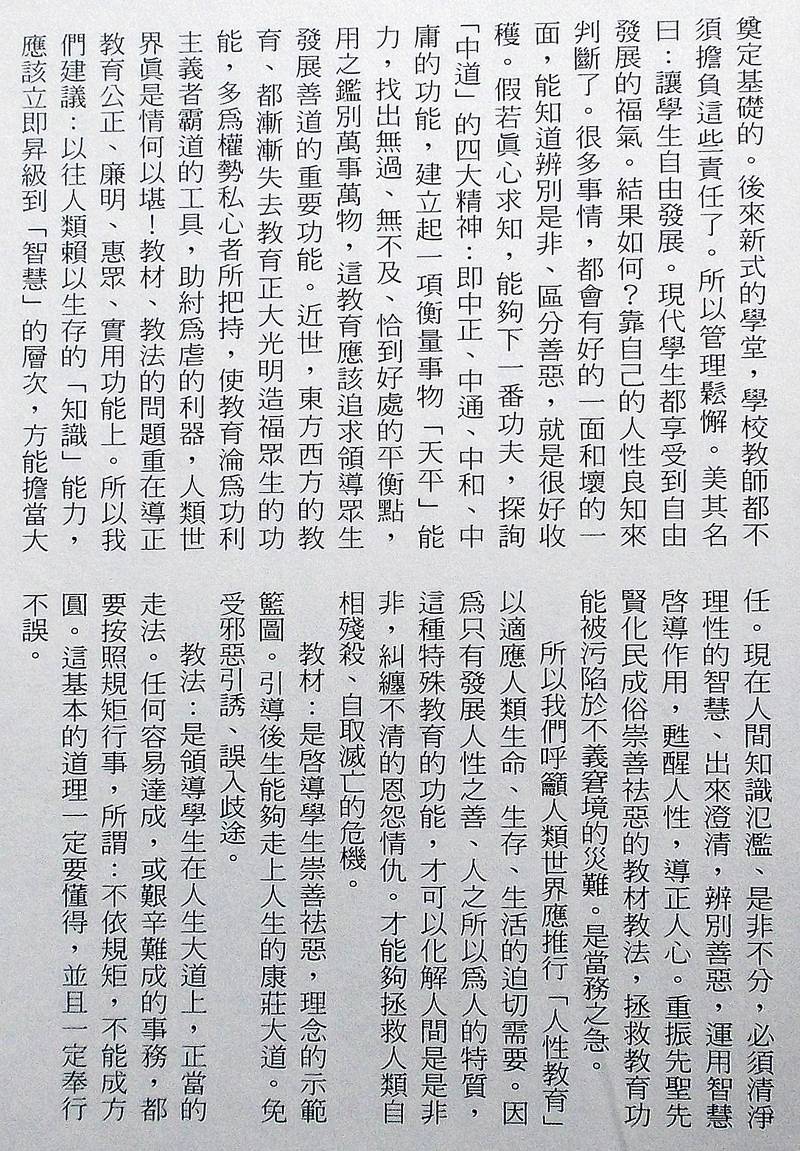 奠定基礎的。後來新式的學堂，學校教師都不
須擔負這些責任了。所以管理鬆懈。美其名
曰：讓學生自由發展。現代學生都享受到自由
發展的福氣。結果如何？靠自己的人性良知來
判斷了。很多事情，都會有好的一面和壞的一
面，能知道辨別是非、區分善惡，就是很好收
穫。假若眞心求知，能夠下一番功夫，探詢
「中道」的四大精神：即中正、中通、中和、中
庸的功能，建立起一項衡量事物「天平」能
力，找出無過、無不及、恰到好處的平衡點，
用之鑑別萬事萬物，這教育應該追求領導眾生
發展善道的重要功能。近世，東方西方的教
育、都漸漸失去教育正大光明造福眾生的功
能，多爲權勢私心者所把持，使教育淪爲功利
主義者霸道的工具，助紂爲虐的利器，人類世
界眞是情何以堪！教材、教法的問題重在導正
教育公正、廉明、惠眾、實用功能上。所以我
們建議：以往人類賴以生存的「知識」能力，
應該立即昇級到「智慧」的層次，方能擔當大
任。現在人間知識氾濫、是非不分，必須清淨
理性的智慧、出來澄清，辨別善惡，運用智慧
啓導作用，甦醒人性，導正人心。重振先聖先
賢化民成俗崇善祛惡的教材教法，拯救教育功
能被污陷於不義窘境的災難。是當務之急。
所以我們呼籲人類世界應推行「人性教育」
以適應人類生命、生存、生活的迫切需要。因
爲只有發展人性之善、人之所以爲人的特質，
這種特殊教育的功能，才可以化解人間是是非
非，糾纏不清的恩怨情仇。才能夠拯救人類自
相殘殺、自取滅亡的危機。
教材：是啓導學生崇善祛惡，理念的示範
籃圖。引導後生能夠走上人生的康莊大道。免
受邪惡引誘、誤入歧途。
教法：是領導學生在人生大道上，正當的
走法。任何容易達成，或艱辛難成的事務，都
要按照規矩行事，所謂：不依規矩，不能成方
圓。這基本的道理一定要懂得，並且一定奉行
不誤。